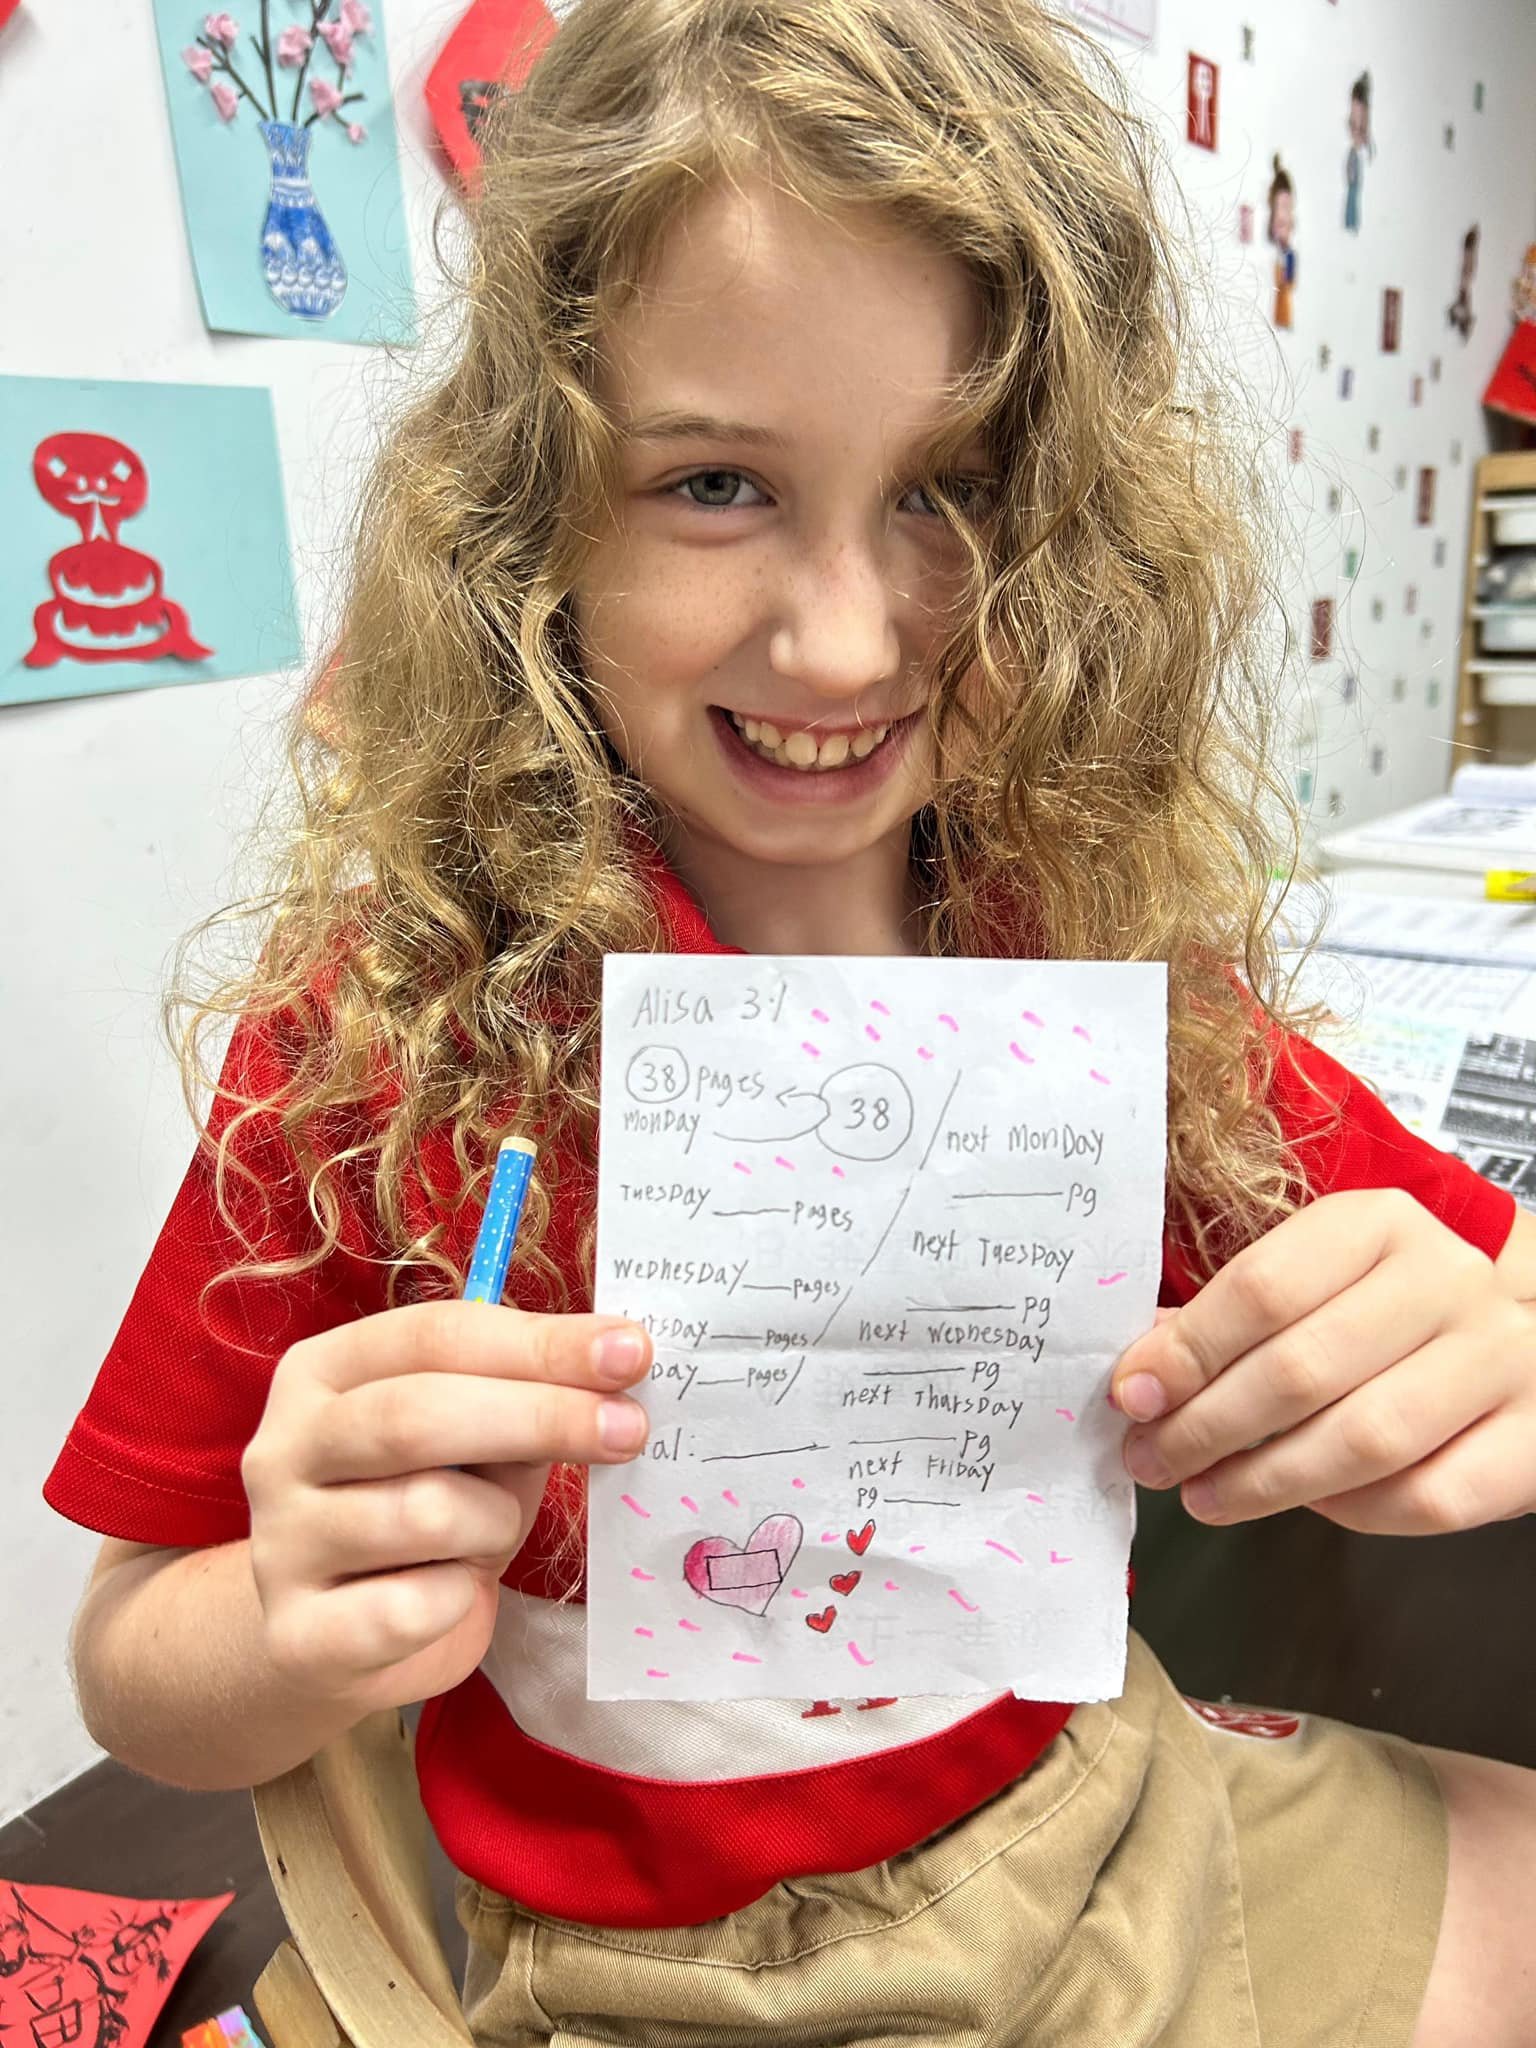 Alisa 3.1
38 pages
38
Monday
Tuesday ____ pages
Wednesday ____ pages
ursday ____ pages
day ____ pages
al: ____
next Monday
____ pg
next Tuesday
____ pg
next Wednesday
____ pg
next Thursday
____ pg
next Friday
pg ____